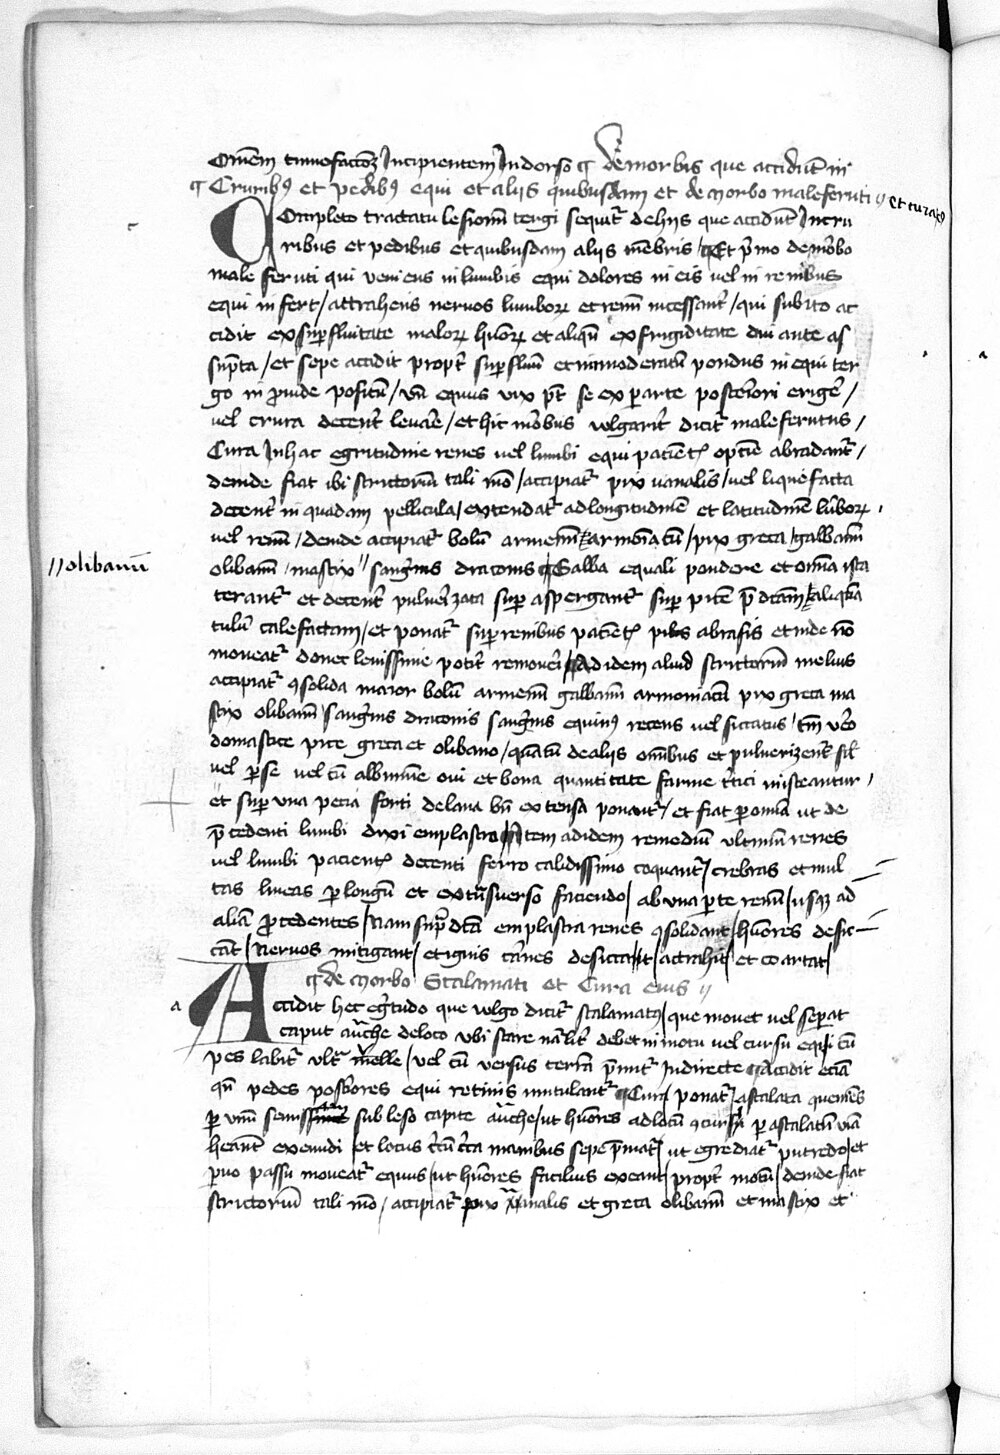 Omnem tumefactionem Incipientem In dorso ¶ De morbis que accidunt in
¶ Cruribus et pedibus equi et aliis quibusdam et de morbo maleferuti // et curatio
Completo tractatu lesionum tergi sequitur de hijs que accidunt In cru
ribus et pedibus et quibusdam aliis membris / ¶ Et primo de morbo
male feruti qui veniens in lumbis equi dolores in eis vel in renibus
equi infert / attrahens nervos lumborum et renum incessanter / qui subito ac
cidit ex superfluitate malorum humorum et aliquando ex frigiditate diu ante as
sumpta / et sepe accidit propter superfluum et inmoderatum pondus in equi ter
go in provide positum / unde equus vix potest se ex parte posteriori erigere /
vel crura decenter levare / et hic morbus vulgariter dicitur maleferutus /
Cura In hac egritudine renes vel lumbi equi pacientis optime abradantur /
deinde fiat ibi strictorium tali modo / accipiatur pix navalis / vel liquefacta
decenter in quadam pellicula / extendatur ad longitudinem et latitudinem lumborum
vel renum / deinde accipiatur bolum armenum armoniacum / pix greca / galbanum
olibanum / mastix // sanguinis draconis ¶ Galba equali pondere et omnia ista
terantur et decenter pulverizata super aspergantur super picem predictam aliquan
tulum calefactam / et ponatur super renibus pacientis pilis abrasis et inde non
moveatur donec levissime poterit removeri / Ad idem aliud strictorium melius
accipiatur consolida maior bolum armenum galbanum armoniacum pix greca ma
stix olibanum sanguinis draconis sanguinis equinus recens vel siccatus / tantum vero
do mastice pice greca et olibano / quantum de aliis omnibus et pulverizentur simul
vel per se vel cum albumine ovi et bona quantitate farine tritici misceantur /
et super una pecia forti de lana bene extensa ponantur / et fiat per omnia ut de
precedenti lumbi dixi emplastro / Item ad idem remedium ultimum renes
vel lumbi pacientis decenti ferro calidissimo coquantur / crebras et mul
tas lineas per longum et ex transverso faciendo / ab una parte renum / usque ad
aliam procedentes / Nam supradicta emplastra renes consolidant / humores desic
cant / Nervos mitigant / et ignis carnes desiccat / attrahit et coartat /
¶ de morbo Scalamati et Cura eius //
Accidit hec egritudo que vulgo dicitur scalamatus / que movet vel separat
caput anche de loco ubi stare naturaliter debet in motu vel cursu equi cum
pes labitur ultra velle / vel cum versus terram premitur Indirecte ¶ Accidit eciam
quando pedes posteriores equi retinis mutulantur ¶ Cura / ponatur astalata
per unum semissem sub leso capite anche / ut humores ad locum concursi per astalatum viam
heant exeundi / et locus circum circa manibus sepe prematur / ut egrediatur putredo / et
parvo passu moveatur equus / ut humores facilius exeant / propter motum / deinde fiat
strictorium tali modo / accipiatur pix navalis et greca olibanum et mastix et
// olibanum
a